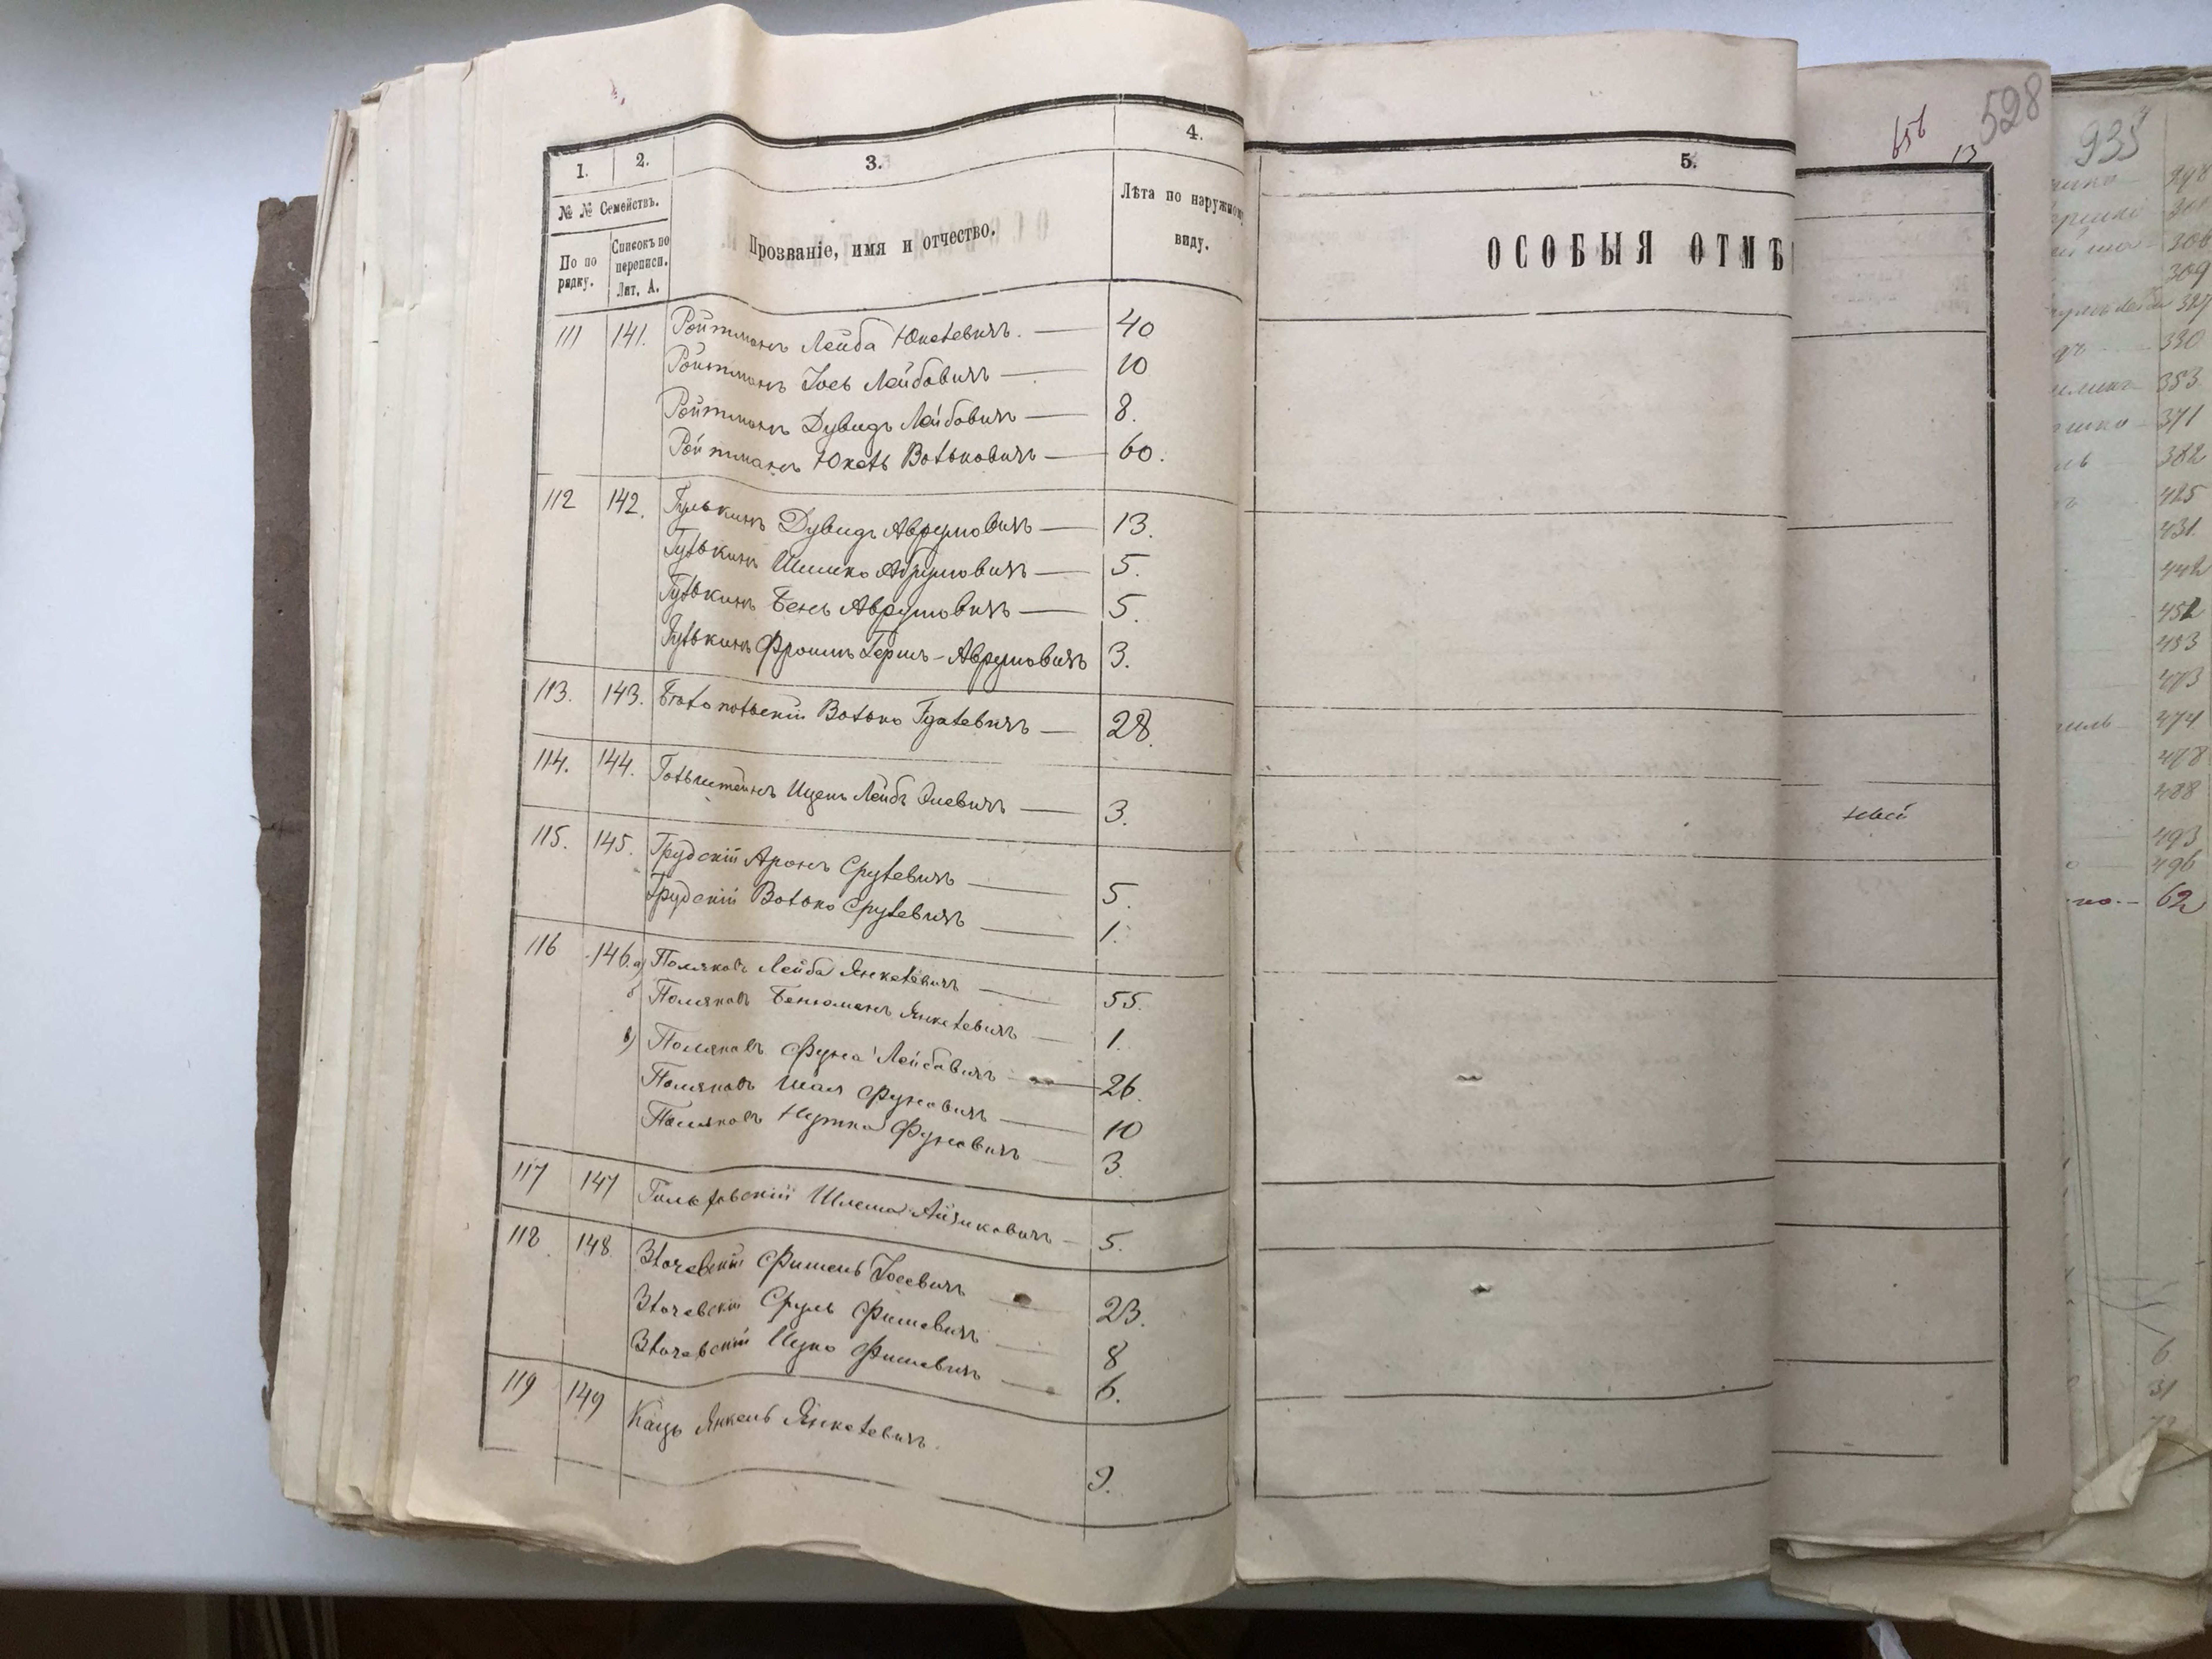 1. 2. 3. 4. 5.
№ № Семействъ.
По порядку.
Списокъ по переписи. Лит. А.
Прозваніе, имя и отчество.
Лѣта по наружному виду.
ОСОБЫЯ ОТМѢ
528
13
935
111 141. Ройтманъ Лейба Юкелевичъ. — 40
Ройтманъ Іось Лейбовичъ — 10
Ройтманъ Дувидъ Лейбовичъ — 8.
Ройтманъ Юкель Вольковичъ — 60.
112 142. Гулькинъ Дувидъ Аврумовичъ — 13.
Гулькинъ Шимко Аврумовичъ — 5.
Гулькинъ Бень Аврумовичъ — 5.
Гулькинъ Фроимъ Гершъ-Аврумовичъ 3.
113. 143. Бялопольскій Волько — 28.
114. 144. Гольштейнъ Ицекъ Лейбъ — 3.
115. 145. Грудскій Аронъ Срулевичъ — 5.
Грудскій Волько Срулевичъ — 1.
116 146. а) Поляковъ Лейба Янкелевичъ — 55.
б) Поляковъ Бенюминъ Янкелевичъ — 1.
в) Поляковъ Фуна Лейбовичъ — 26.
Поляковъ Шая Фуновичъ — 10
Поляковъ Нутка Фуновичъ — 3.
117 147 Шлема Айзиковичъ — 5.
118. 148. Злочевскій Фишель Іосевичъ 23.
Злочевскій Сруль Фишевичъ 8
Злочевскій Ицко Фишевичъ — 6.
119 149 Кацъ Янкель Янкелевичъ. 9.
309
330
353
371
382
425
431
442
452
453
473
474
478
488
493
496
62
6
31